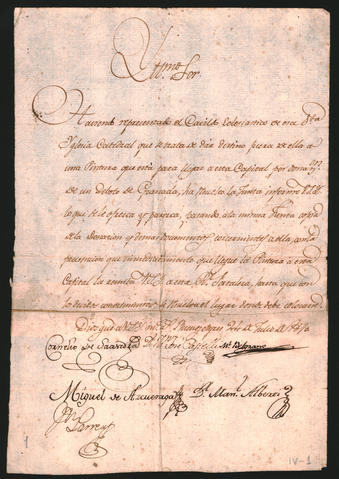 Yll.mo Sor.
Haviendo representado el Cavildo Eclesiastico de esa Sta
Yglesia Catedral que se trata de dar destino fuera de ella a
una Pintura que está para llegar a esta Capital por donacion
de un devoto de Granada, ha puesto la Junta informe V.S.Y.
lo que se le ofresca y paresca, pasando a la misma Junta copia
de la donacion y demas documentos concernientes a ella, con la
precepcion que inmediatamente que llegue la Pintura a esta
Capital la remita V.S.Y. a esa Sta. Yglesia, hasta que con
los devidos conocimientos se resuelva el lugar donde debe colocarse
Dios gue a V.S.Y. ms. as. Buenos Ayres de Julio de 1810
Cornelio de Saavedra Castelli Ml. Belgrano
Miguel de Azcuenaga Dr. Man.l Alberti
Jn. Larrea
1
IV-1